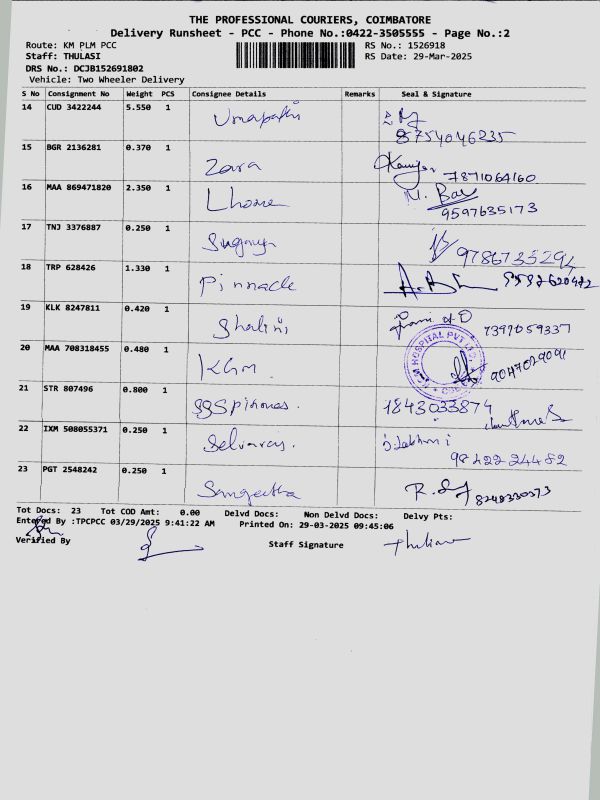 THE PROFESSIONAL COURIERS, COIMBATORE
Delivery Runsheet - PCC - Phone No.:0422-3505555 - Page No.:2
Route: KM PLM PCC RS No.: 1526918
Staff: THULASI RS Date: 29-Mar-2025
DRS No.: DCJB152691802
Vehicle: Two Wheeler Delivery
S No Consignment No Weight PCS Consignee Details Remarks Seal & Signature
14 CUD 3422244 5.550 1 Umapathi
8754046235
15 BGR 2136281 0.370 1 Zara 7871064160
16 MAA 869471820 2.350 1 Lhome 9597635173
17 TNJ 3376887 0.250 1 Suganya
18 TRP 628426 1.330 1 Pinnacle
19 KLK 8247811 0.420 1 Shalini 7397059337
20 MAA 708318455 0.480 1 KHM 9047029091
HOSPITAL PVT LTD
21 STR 807496 0.800 1 1843033874
22 IXM 508055371 0.250 1 Selvaraj.
98422 24482
23 PGT 2548242 0.250 1 Sangeetha
Tot Docs: 23 Tot COD Amt: 0.00 Delvd Docs: Non Delvd Docs: Delvy Pts:
Entered By :TPCPCC 03/29/2025 9:41:22 AM Printed On: 29-03-2025 09:45:06
Verified By Staff Signature